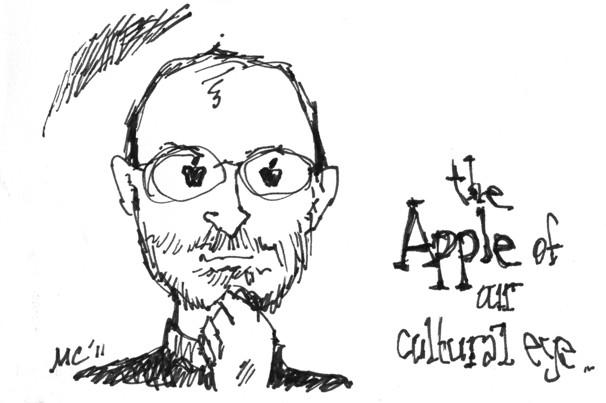 the
Apple of
our
cultural eye...
MC'11